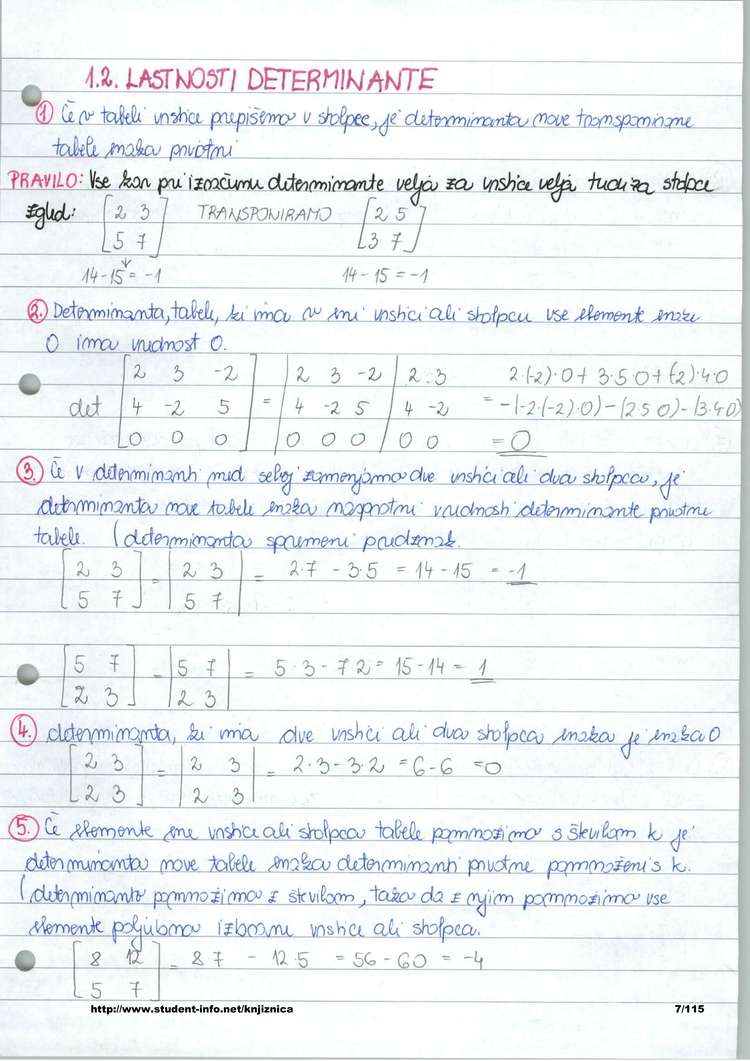 1.2. LASTNOSTI DETERMINANTE
① Če v tabeli vrstice prepišemo v stolpce, je determinanta nove transponirane
tabele enaka prvotni
PRAVILO: Vse kar pri izračunu determinante velja za vrstice velja tudi za stolpce
Zgled: [2 3 TRANSPONIRAMO [2 5
5 7] 3 7]
14-15 = -1 14-15 = -1
2. Determinanta, tabele, ki ima v eni vrstici ali stolpcu vse elemente enake
0 ima vrednost 0.
[2 3 -2 | 2 3 -2 | 2 3 2·(-2)·0 + 3·5·0 + (-2)·4·0
det 4 -2 5 = 4 -2 5 4 -2 = -(-2·(-2)·0) - (2 5 0) - (3·4 0)
0 0 0] 0 0 0 | 0 0 = 0
3. Če v determinanti med seboj zamenjamo dve vrstici ali dva stolpca, je
determinanta nove tabele enaka nasprotni vrednosti determinante prvotne
tabele. (determinanta spremeni predznak.
[2 3 = | 2 3 | = 2·7 - 3·5 = 14-15 = -1
5 7] 5 7
[5 7 = | 5 7 | = 5·3 - 7 2 = 15-14 = 1
2 3] 2 3
4. determinanta, ki ima dve vrstici ali dva stolpca enaka je enaka 0
[2 3 = | 2 3 | = 2·3 - 3·2 = 6-6 = 0
2 3] 2 3
5. Če elemente ene vrstice ali stolpca tabele pomnožimo s številom k je
determinanta nove tabele enaka determinanti prvotne pomnoženi s k.
(determinanto pomnožimo z številom, tako da z njim pomnožimo vse
elemente poljubno izbrane vrstice ali stolpca.
[8 12 = 8 7 - 12·5 = 56-60 = -4
5 7]
http://www.student-info.net/knjiznica 7/115